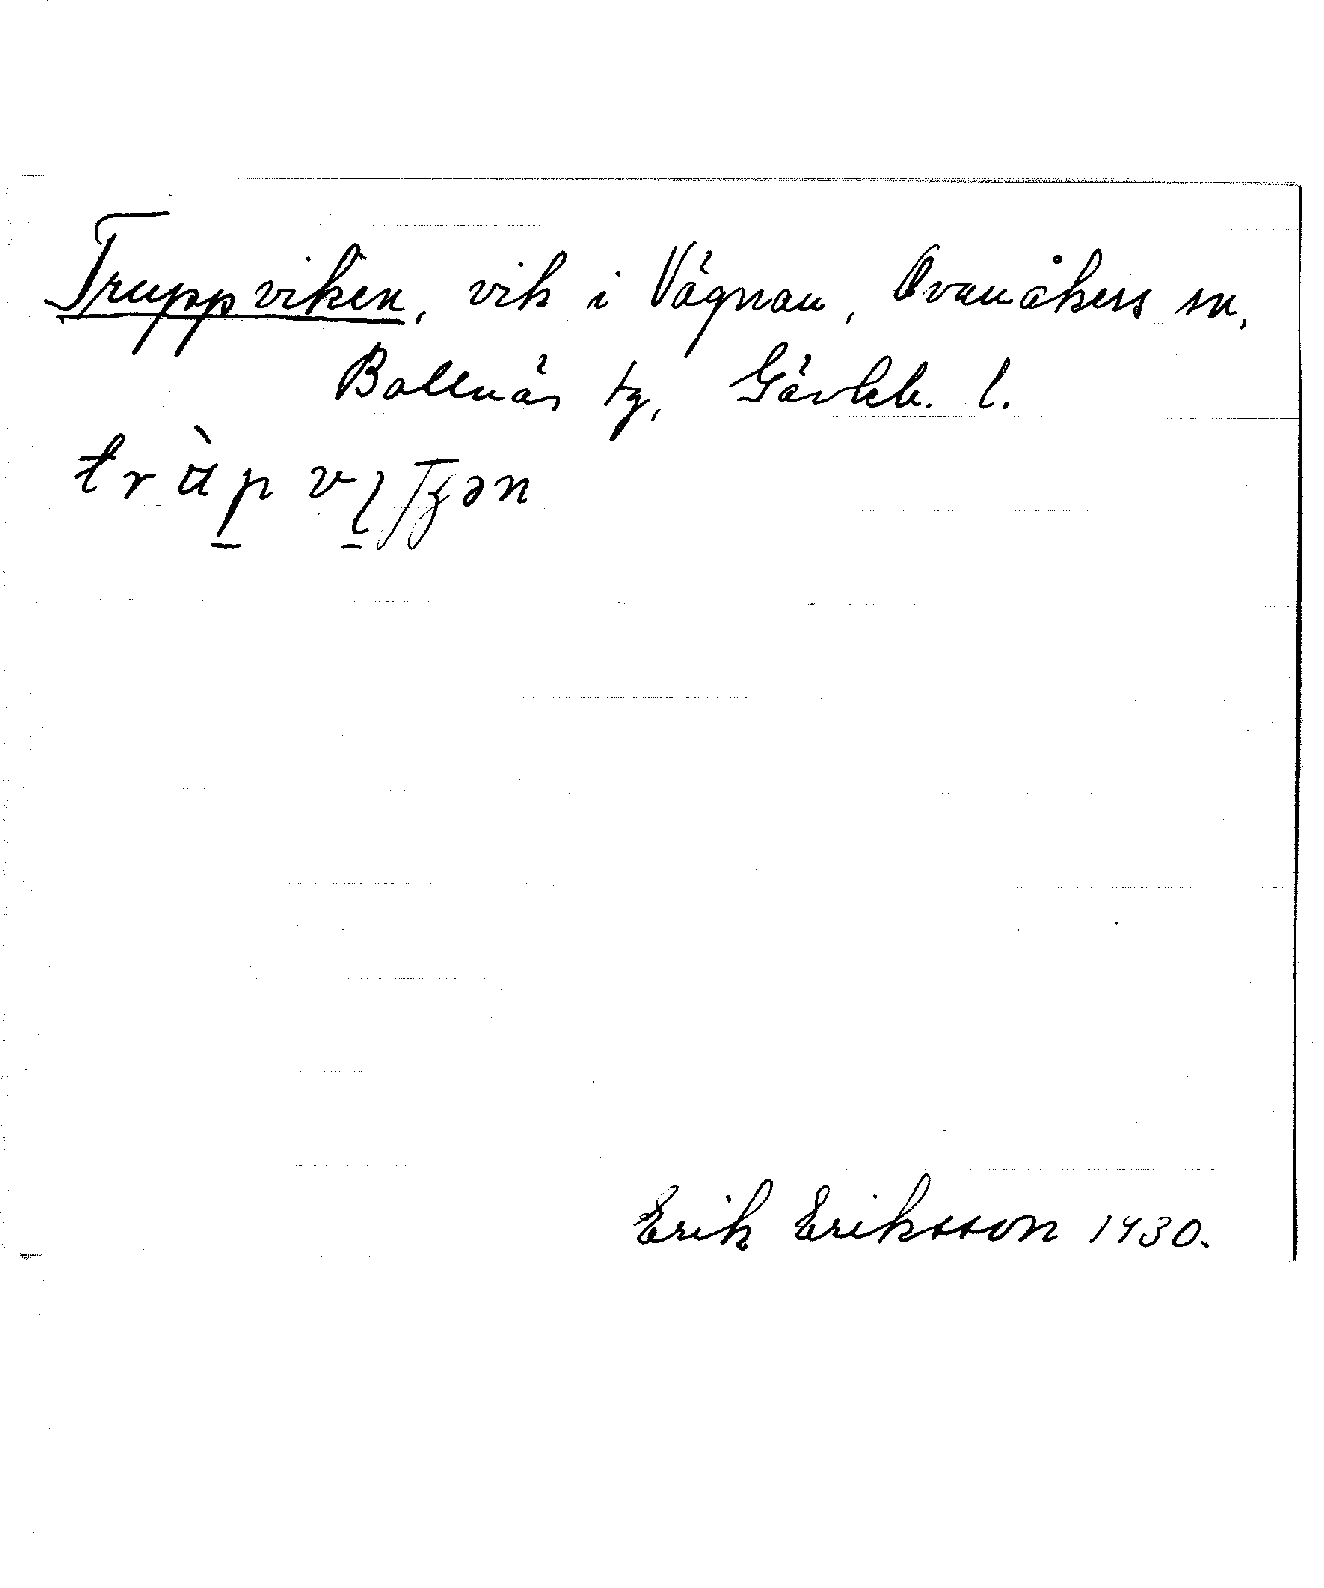 Truppviken, vik i Vägnan, Ovanåkers sn,
Bollnäs tg, Gävleb. l.
Erik Eriksson 1930.